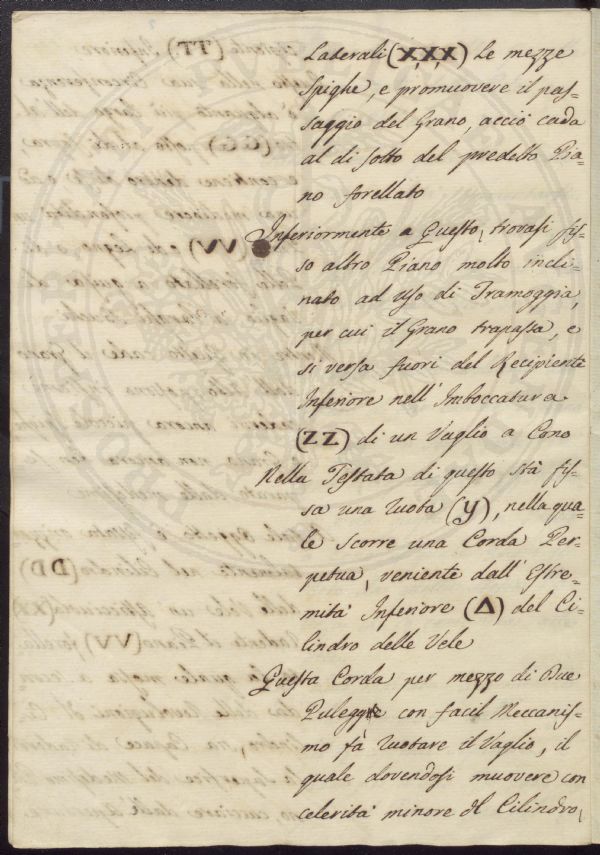 Laterali (X,X,X) Le mezze
Spighe, e promuovere il pas-
saggio del Grano, acciò cada
al di sotto del predetto Pia-
no forellato
Inferiormente a Questo, trovasi fis-
so altro Piano molto incli-
nato ad uso di Tramoggia,
per cui il Grano trapassa, e
si versa fuori del Recipiente
Inferiore nell' Imboccatura
(ZZ) di un Vaglio a Cono
Nella Testata di questo stà fis-
sa una ruota (y), nella qua-
le scorre una Corda Per-
petua, veniente dall' Estre-
mità Inferiore (Δ) del Ci-
lindro delle Vele
Questa Corda per mezzo di Due
Pulegge con facil Meccanis-
mo fà ruotare il Vaglio, il
quale dovendosi muovere con
celerità minore del Cilindro,